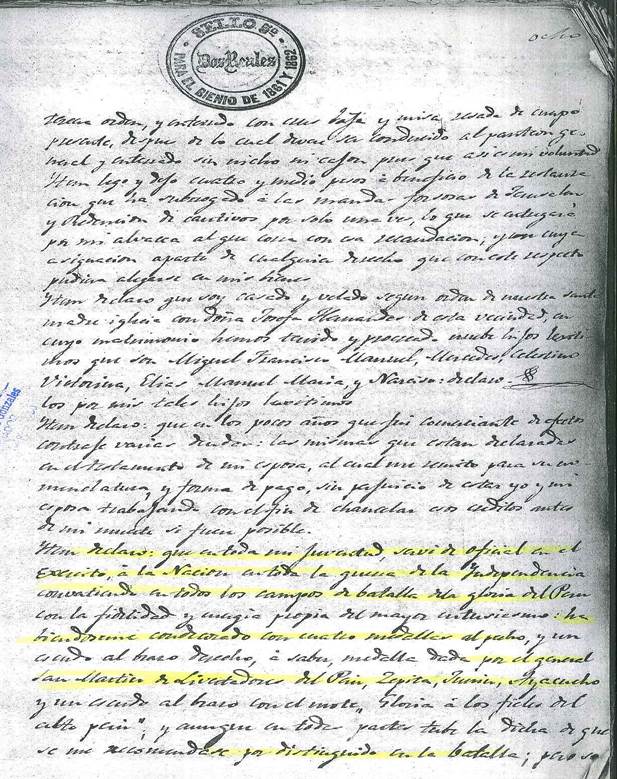 SELLO 9º
Dos Reales
PARA EL BIENIO DE 1861 Y 1862
ocho
orden, y enterrado con cruz baja y misa resada de cuerpo
presente, despues de lo cual deverá ser conducido al panteon ge-
neral y enterrado sin nicho ni cajon, pues que asi es mi voluntad
Item lego y dejo cuatro y medio pesos á beneficio de la
cion que ha subrogado á las mandas forsosas de Jerusalen
y Redencion de cautivos por solo una ves, lo que se entregará
por mi alvacea al que corra con esa recaudacion; y con cuya
asignacion aparto de cualquier derecho que con este respecto
pudiera alegarse en mis bienes
Item declaro que soy casado y velado segun orden de nuestra santa
madre iglesia con doña Josefa Hernandes de esta vecindad, en
cuyo matrimonio hemos tenido y procreado nueve hijos lexiti-
mos que son Miguel Francisco Manuel, Mercedes, Celestino
Victorina, Elias Manuel Maria, y Narciso: declaro-
los por mis tales hijos lexitimos
Item declaro: que en los pocos años que fui comerciante de efectos
contraje varias deudas: las mismas que estan declaradas
en el testamento de mi esposa, al cual me remito para su no-
menclatura, y forma de pago, sin perjuicio de estar yo y mi
esposa trabajando con el fin de chancelar esos creditos antes
de mi muerte si fuere posible.
Item declaro: que en toda mi juventud, serví de oficial en el
Exercito, á la Nacion en toda la guerra de la Independencia
convatiendo en todos los campos de batalla de la gloria del Peru
con la fidelidad y energia propia del mayor entusiasmo: ha
biendoseme condecorado con cuatro medallas al pecho, y un
escudo al braso derecho, á saber, medalla dada por el general
San Martin de Livertadores del Peru, Zepita, Junin, Ayacucho
y un escudo al braso con el mote, "Gloria á los fieles del
alto peru", y aunque en todas partes tube la dicha de que
se me recomendase por distinguido en la batalla; pero no